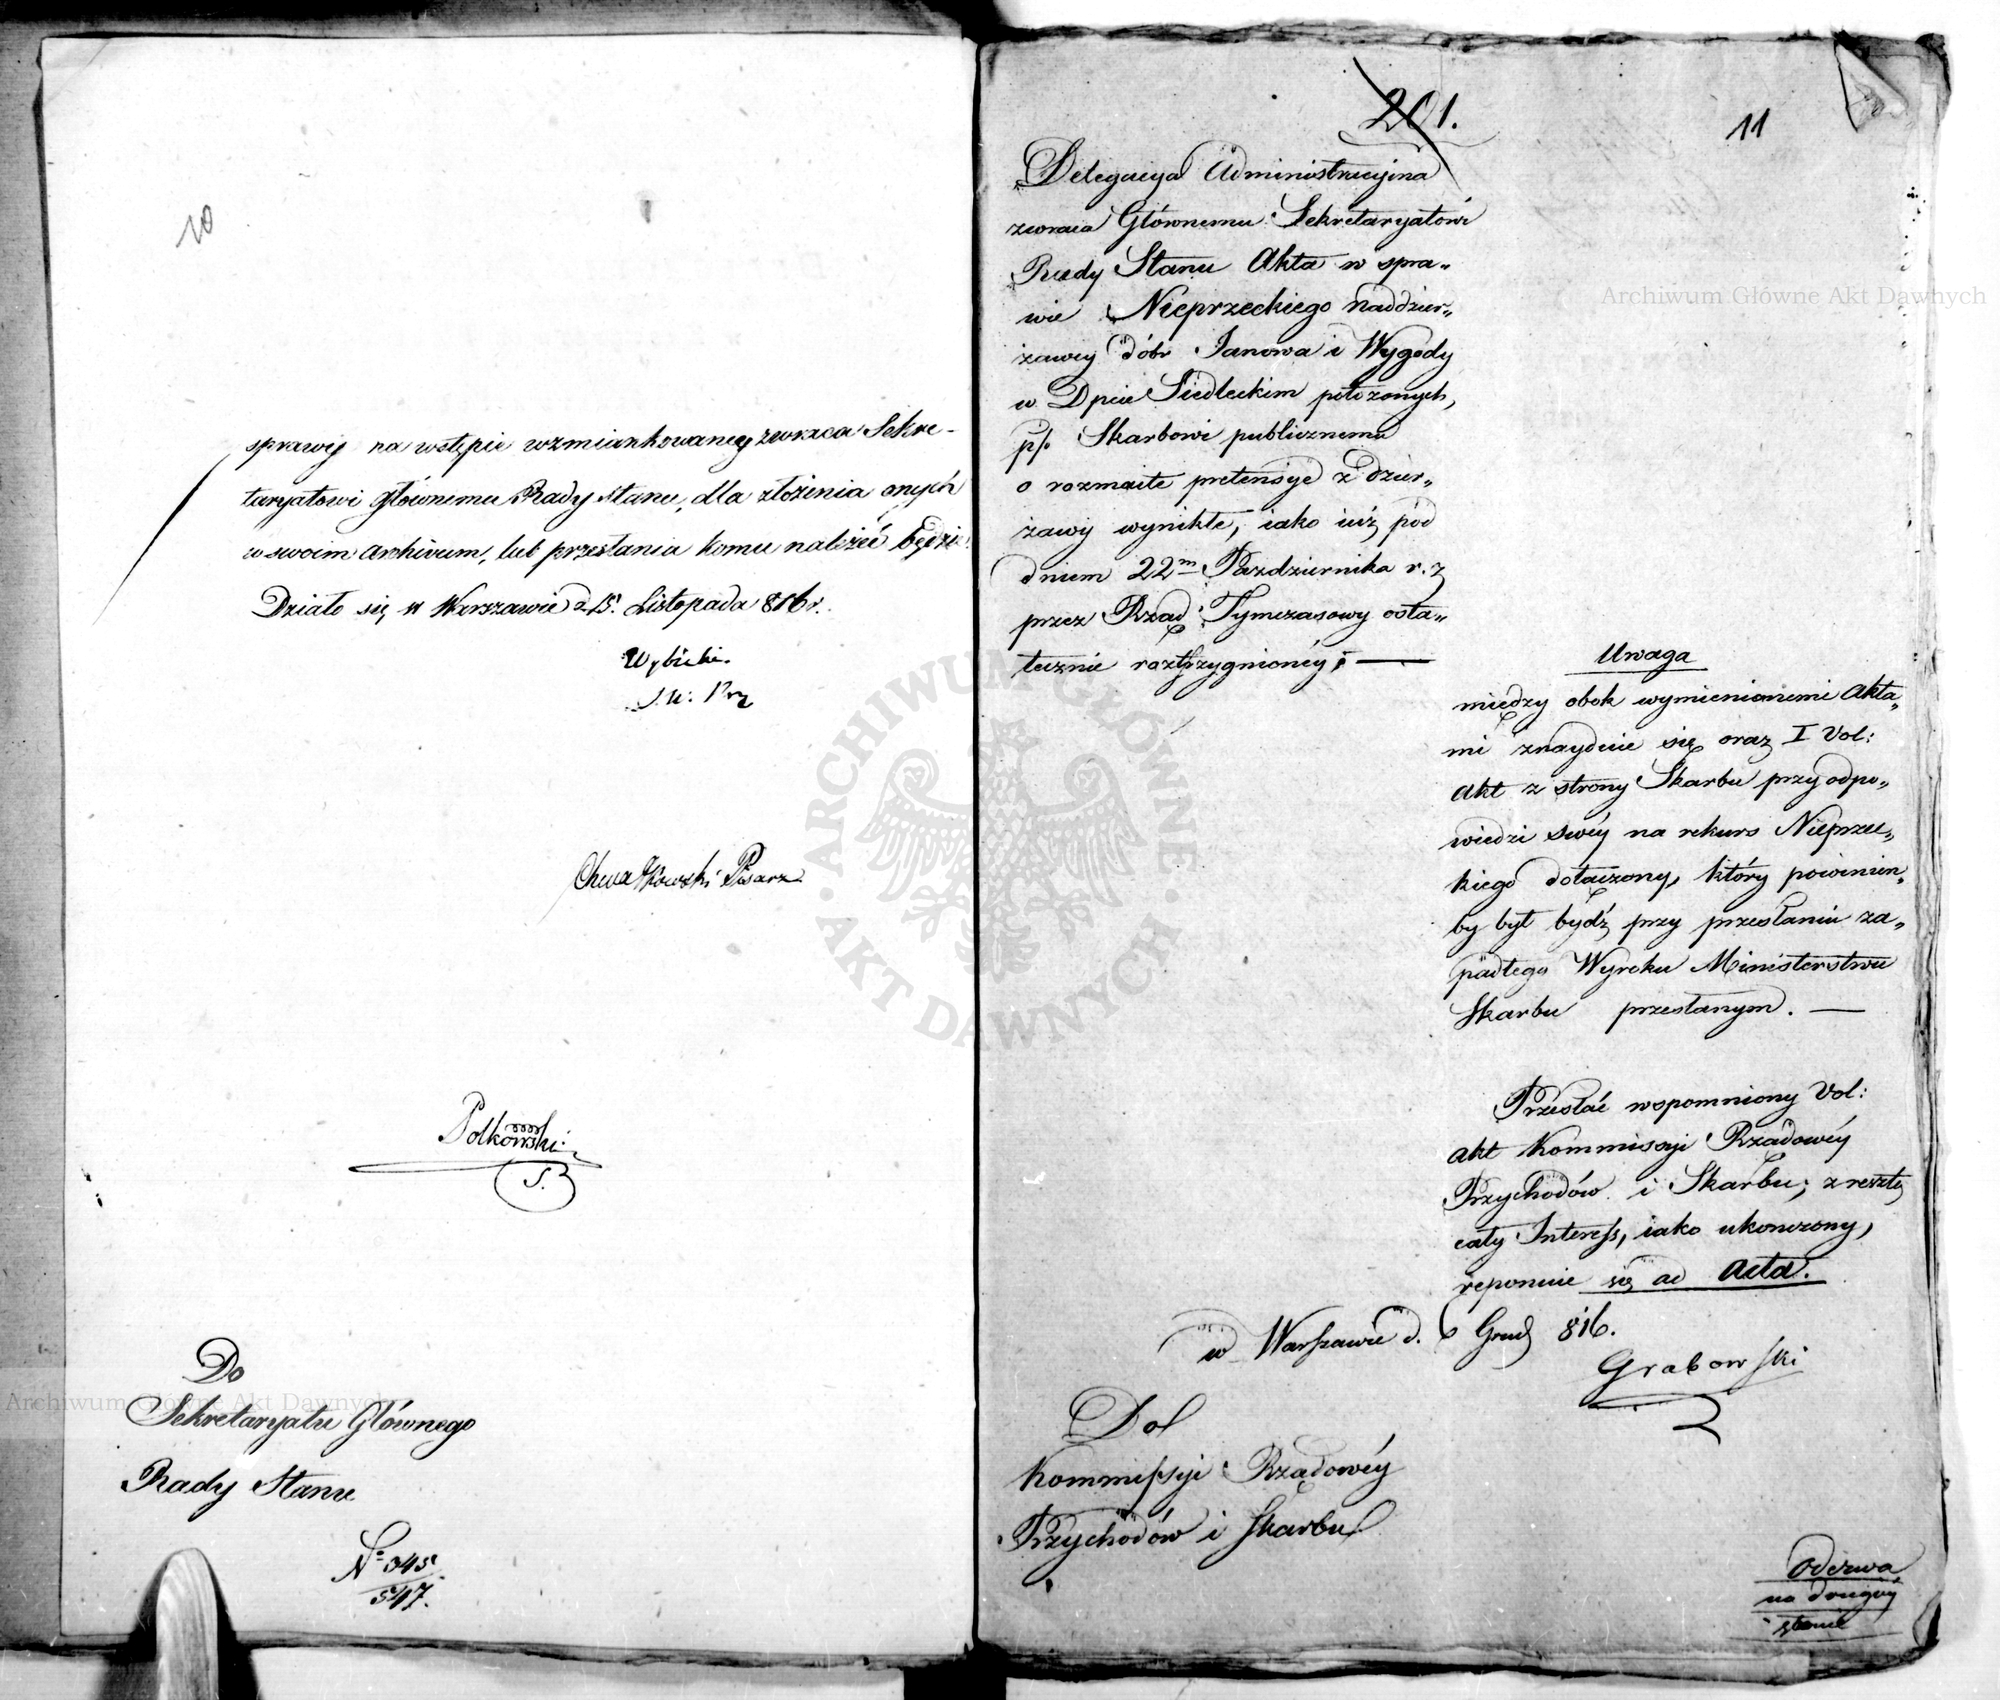 10
sprawy na wstępie wzmiankowaney zwraca Sekre-
taryatowi głównemu Rady stanu, dla złożenia onych
w swoim archivum, lub przesłania komu należeć będzie.
Działo się w Warszawie d. 15. Listopada 816 r.
Wybicki.
Polkowski
S.
Do
Sekretaryatu Głównego
Rady Stanu
No 345
547.
201.
11
Delegacya Administracyina
zwraca Głównemu Sekretaryatowi
Rady Stanu Akta w spra„
wie Nieprzeckiego Naddzier„
żawcy dóbr Janowa i Wygody
w Dpcie Siedleckim położonych,
p/o Skarbowi publicznemu
o rozmaite pretensye z dzier„
żawy wynikłe, iako iuż pod
dniem 22m Pazdziernika r. z
przez Rząd Tymczasowy osta„
tecznie rozstrzygnioney; —
Uwaga
między obok wymienionemi Akta„
mi znayduie się oraz I Vol:
akt z strony Skarbu przy odpo„
wiedzi swéy na rekurs Nieprzec„
kiego dołączony, który powinien„
by był bydź przy przesłaniu za„
padłego Wyroku Ministerstwu
Skarbu przesłanym. —
Przesłać wspomniony Vol:
akt Kommissyi Rządowéy
Przychodów i Skarbu; zresztą
cały Interess, iako ukończony,
reponuie się ad Acta.
w Warszawie d. 6 Grud 816.
Grabowski
Do
Kommissyi Rządowéy
Przychodów i Skarbu
Odezwa
na drugiéy
stronie
Archiwum Główne Akt Dawnych
Archiwum Główne Akt Dawnych
ARCHIWUM GŁÓWNE · AKT DAWNYCH ·